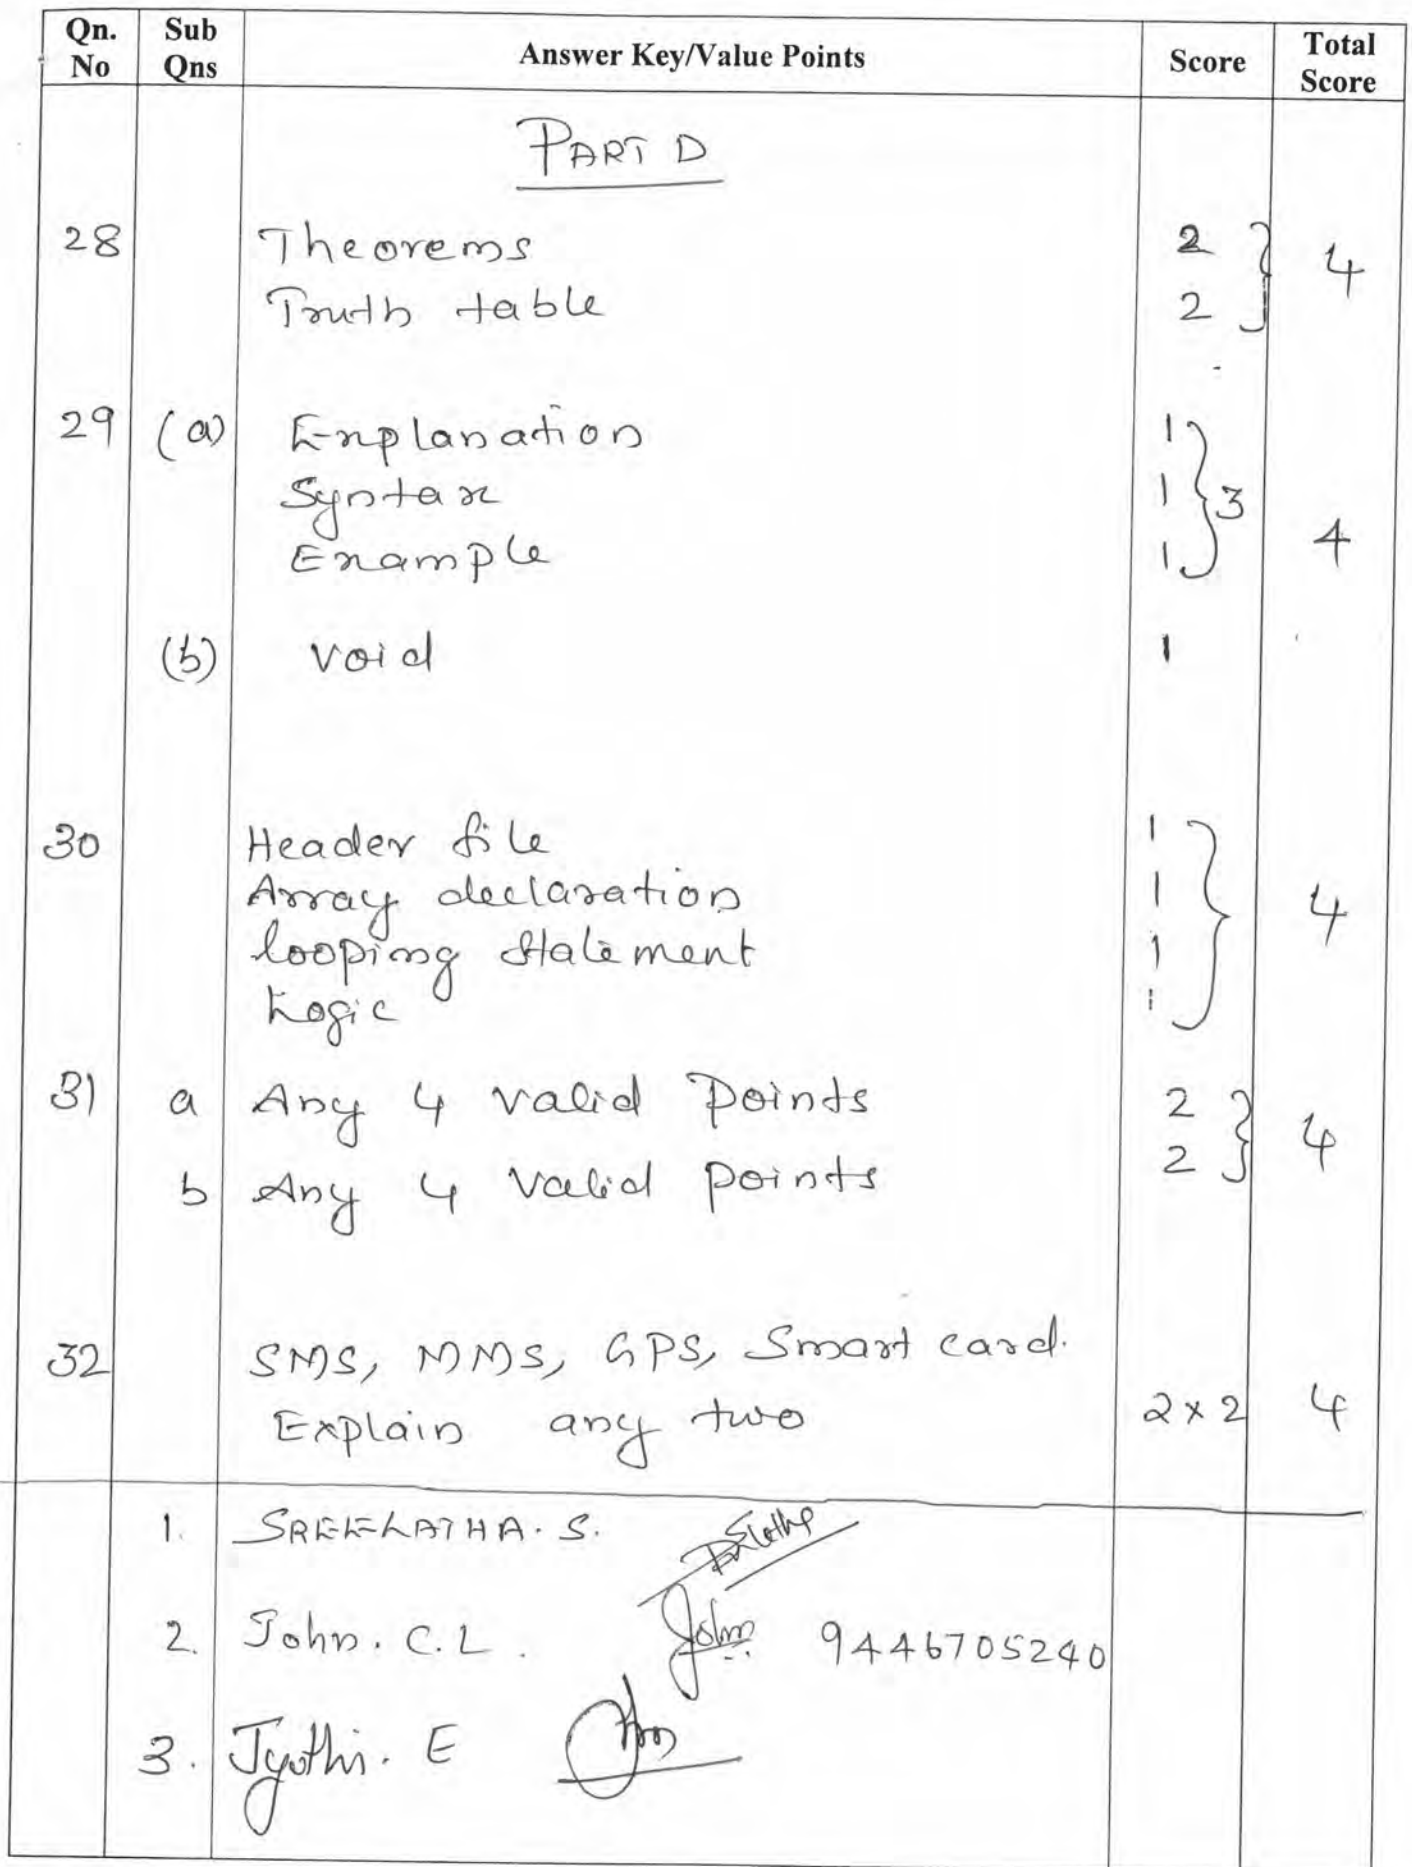 Qn. No Sub Qns Answer Key/Value Points Score Total Score
PART D
28 Theorems 2
Truth table 2 4
29 (a) Explanation 1
Syntax 1 3
Example 1 4
(b) void 1
30 Header file 1
Array declaration 1 4
looping statement 1
Logic 1
31 a Any 4 valid points 2
b Any 4 valid points 2 4
32 SMS, MMS, GPS, Smart card.
Explain any two 2 x 2 4
1. SREELATHA. S.
2. John. C. L. John 9446705240
3. Jyothi. E